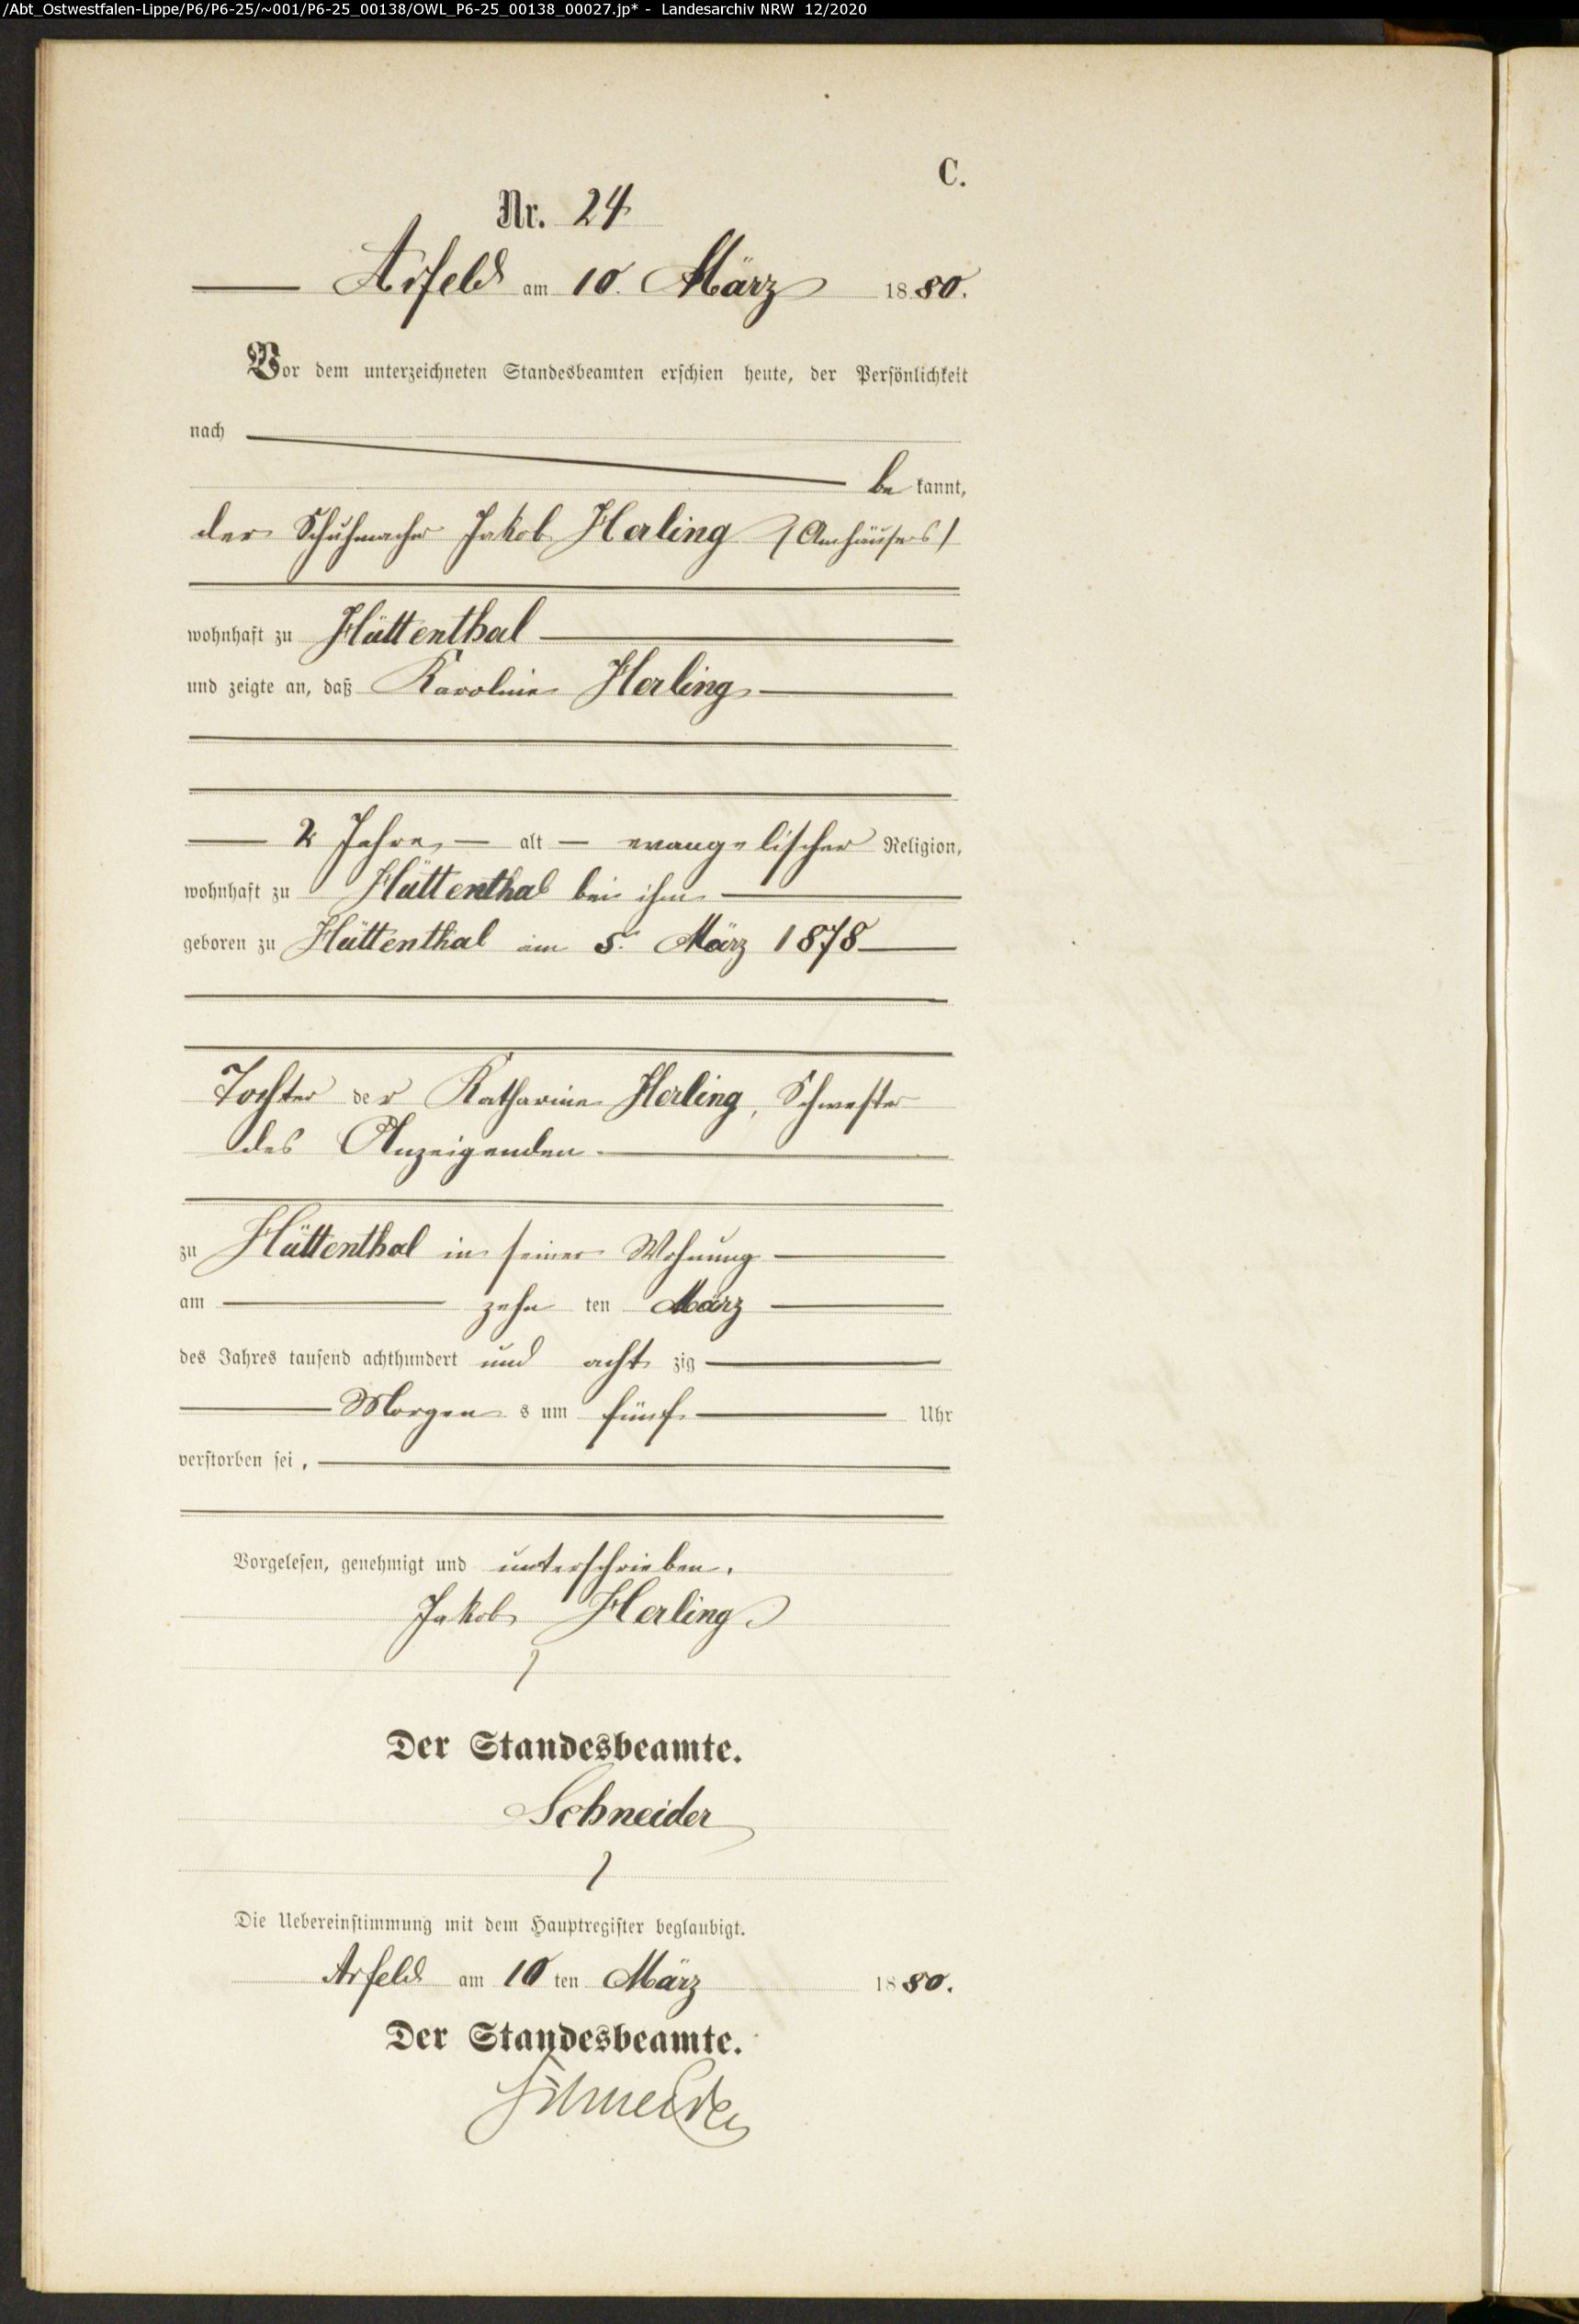 /Abt_Ostwestfalen-Lippe/P6/P6-25/~001/P6-25_00138/OWL_P6-25_00138_00027.jp* - Landesarchiv NRW 12/2020
C.
Nr. 24
Arfeld am 10. März 1880.
Vor dem unterzeichneten Standesbeamten erschien heute, der Persönlichkeit
nach
be kannt,
der Schuhmacher Jakob Herling (Amhäusers)
wohnhaft zu Hüttenthal
und zeigte an, daß Karoline Herling
2 Jahre alt evangelischer Religion,
wohnhaft zu Hüttenthal bei ihm
geboren zu Hüttenthal am 5. März 1878
Tochter der Katharine Herling, Schwester
des Anzeigenden.
zu Hüttenthal in seiner Wohnung
am zehn ten März
des Jahres tausend achthundert und acht zig
Morgen s um fünf Uhr
verstorben sei.
Vorgelesen, genehmigt und unterschrieben.
Jakob Herling
Der Standesbeamte.
Schneider
Die Uebereinstimmung mit dem Hauptregister beglaubigt.
Arfeld am 10 ten März 1880.
Der Standesbeamte.
Schneider